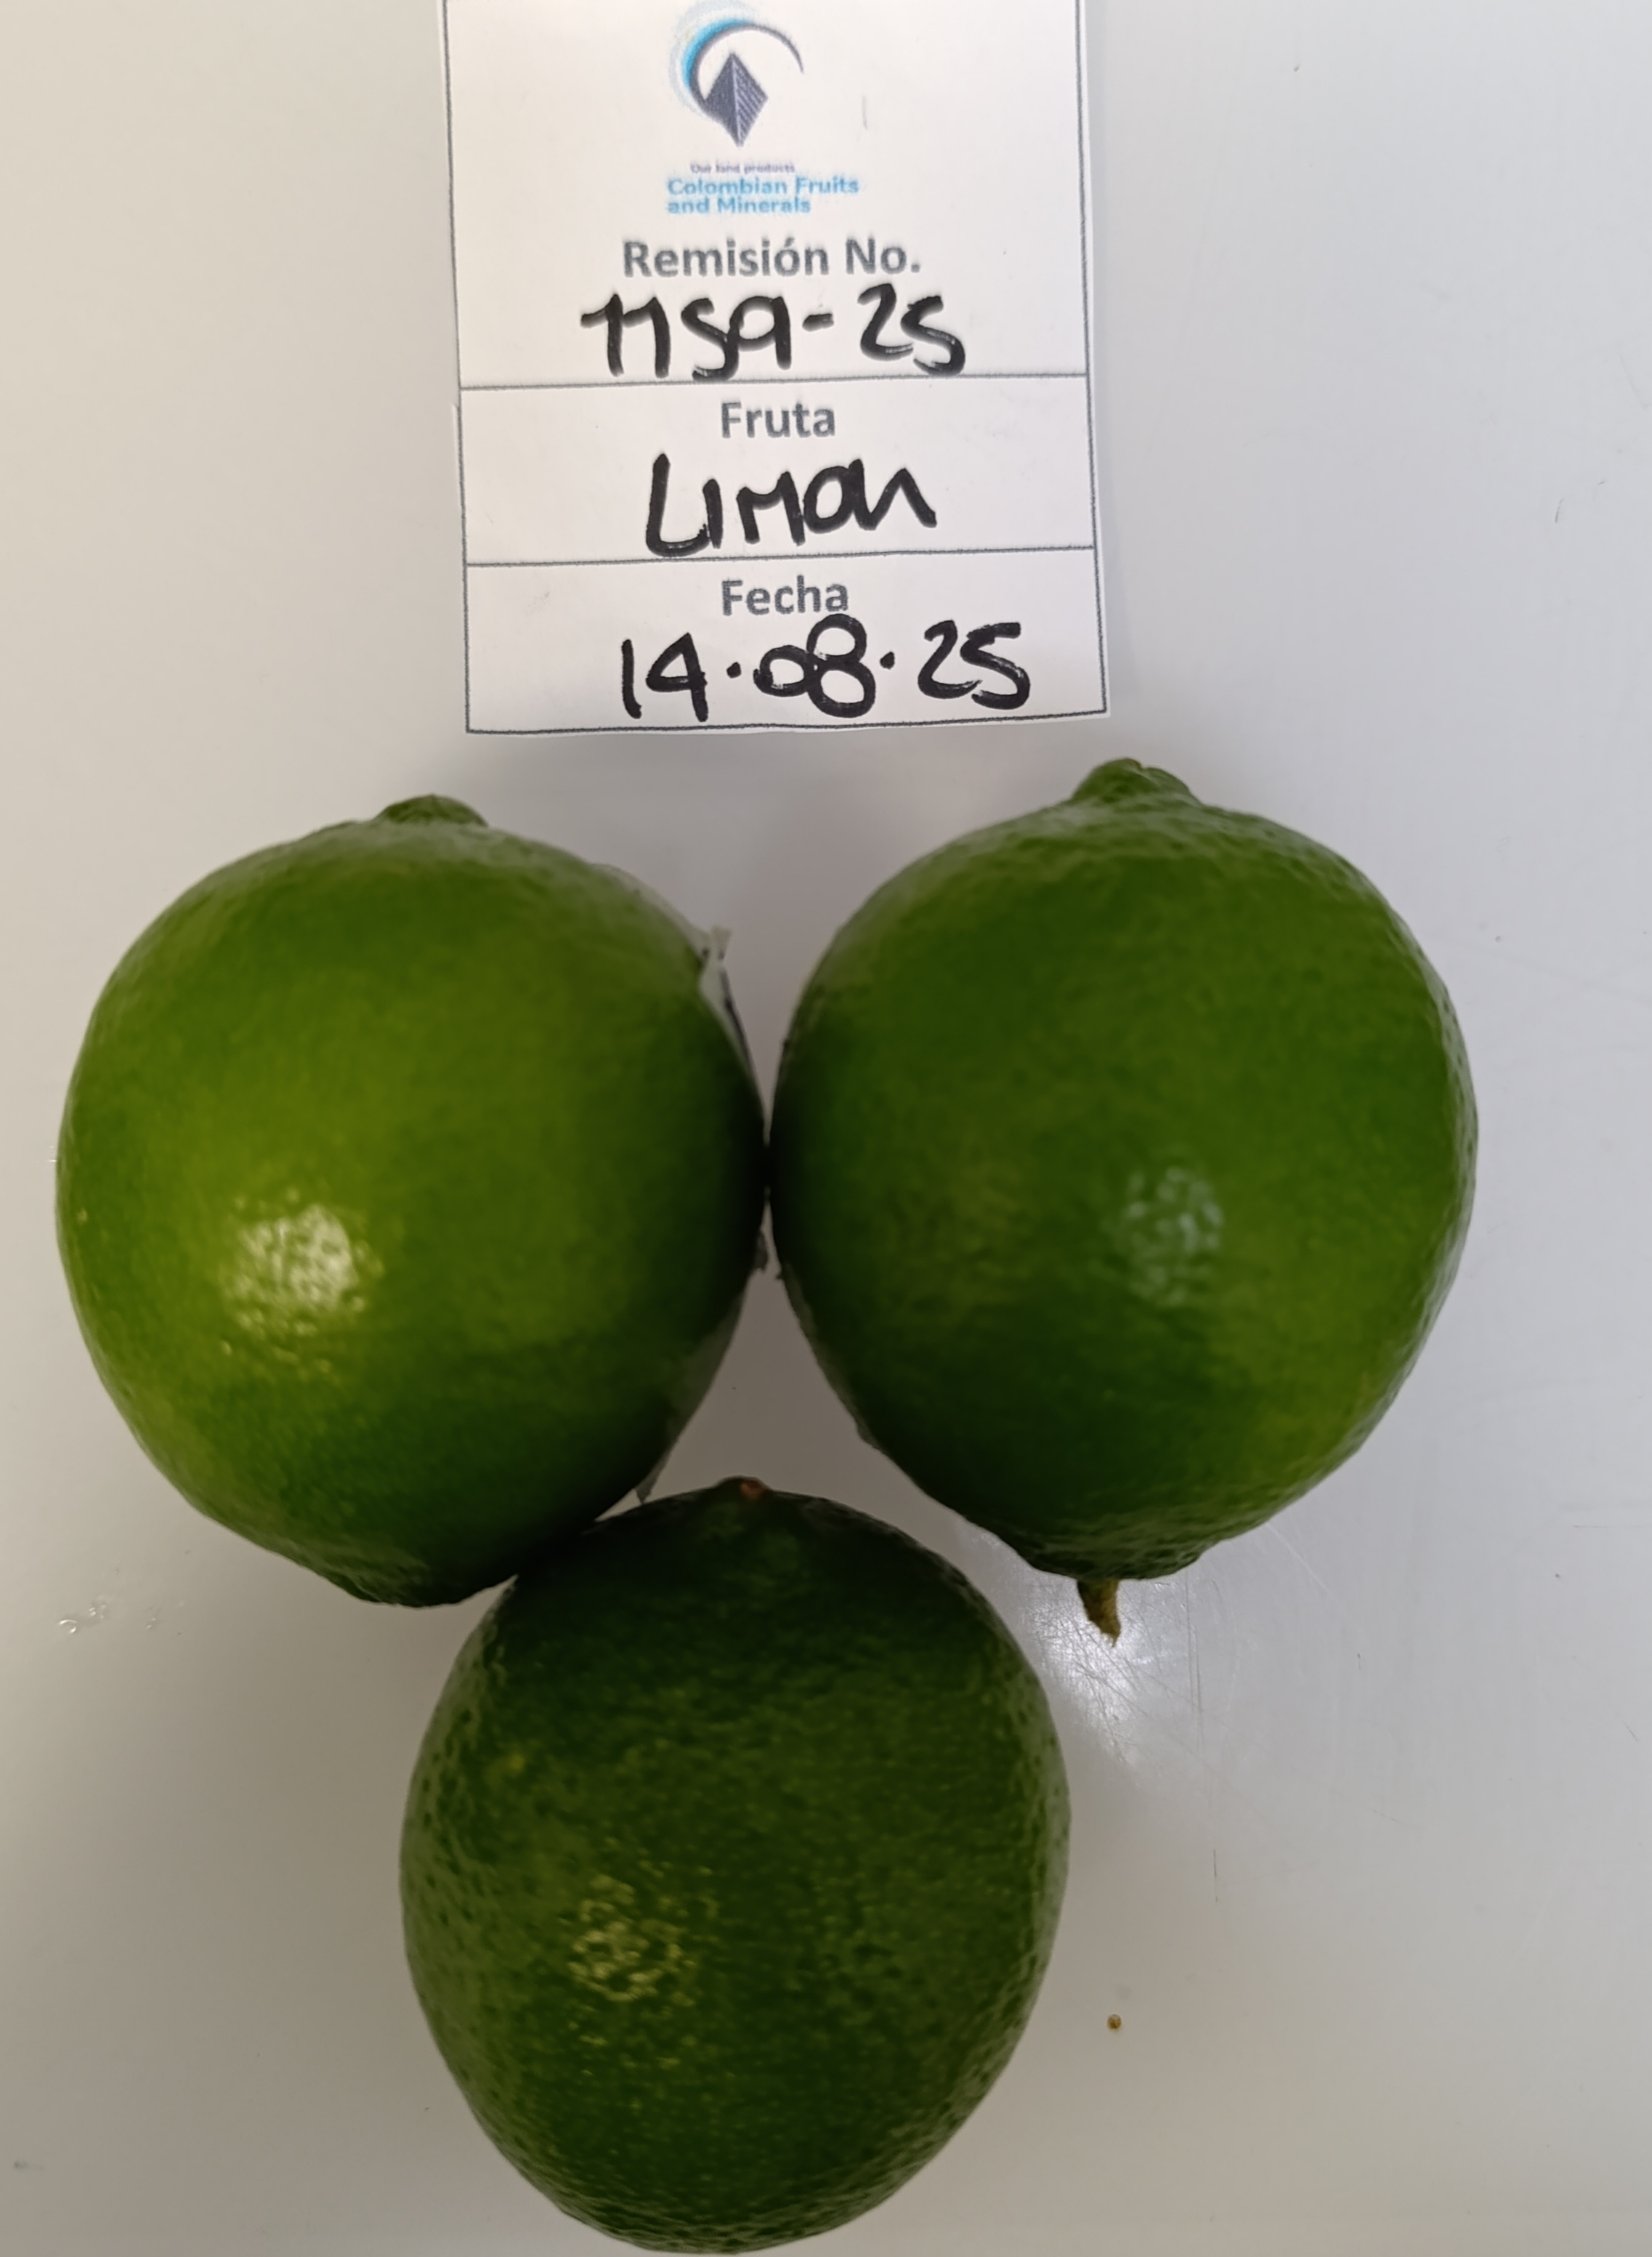 Our land products
Colombian Fruits
and Minerals
Remisión No.
1159-25
Fruta
LIMON
Fecha
14.08.25